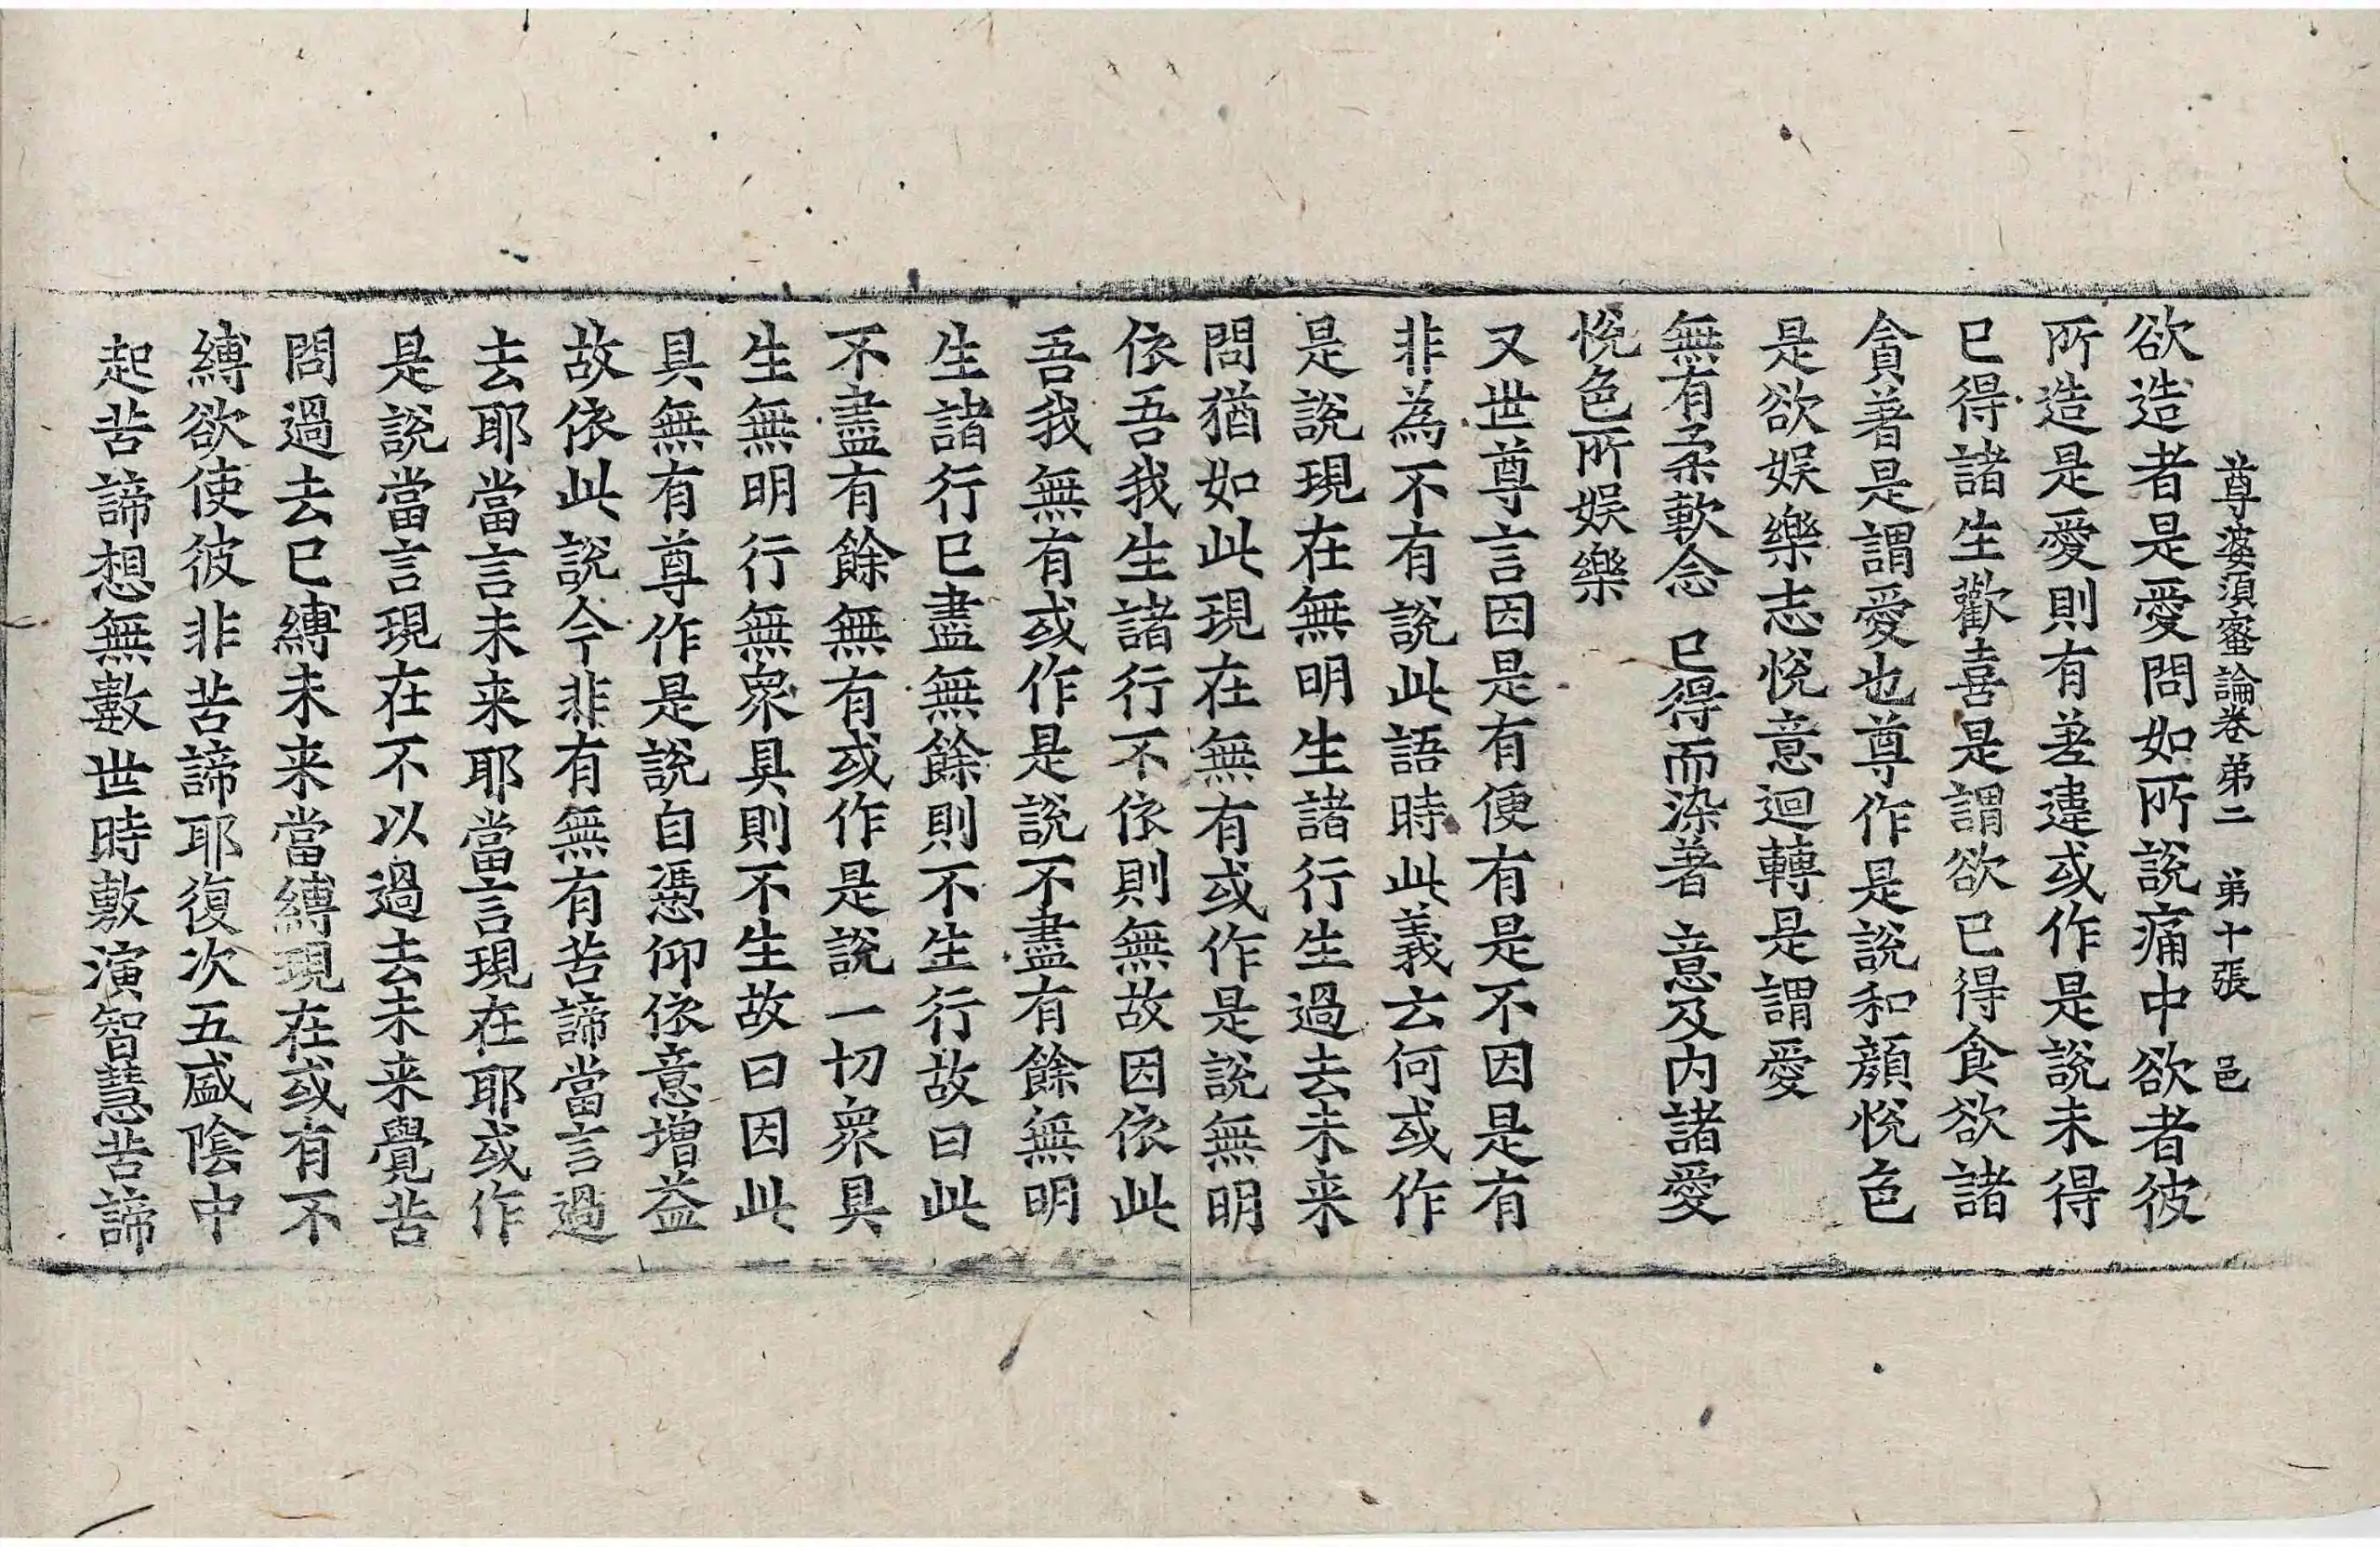 尊婆須蜜論卷弟二　弟十張　邑
欲造者是愛問如所說痛中欲者彼
所造是愛則有差違或作是說未得
已得諸生歡喜是謂欲已得食欲諸
貪著是謂愛也尊作是說和顏悅色
是欲娛樂志悅意迴轉是謂愛
無有柔軟念　已得而染著　意及內諸愛
悅色所娛樂
又世尊言因是有便有是不因是有
非為不有說此語時此義云何或作
是說現在無明生諸行生過去未来
問猶如此現在無有或作是說無明
依吾我生諸行不依則無故因依此
吾我無有或作是說不盡有餘無明
生諸行已盡無餘則不生行故曰此
不盡有餘無有或作是說一切眾具
生無明行無眾具則不生故曰因此
具無有尊作是說自憑仰依意增益
故依此說今非有無有苦諦當言過
去耶當言未来耶當言現在耶或作
是說當言現在不以過去未来覺苦
問過去已縛未来當縛現在或有不
縛欲使彼非苦諦耶復次五盛陰中
起苦諦想無數世時敷演智慧苦諦